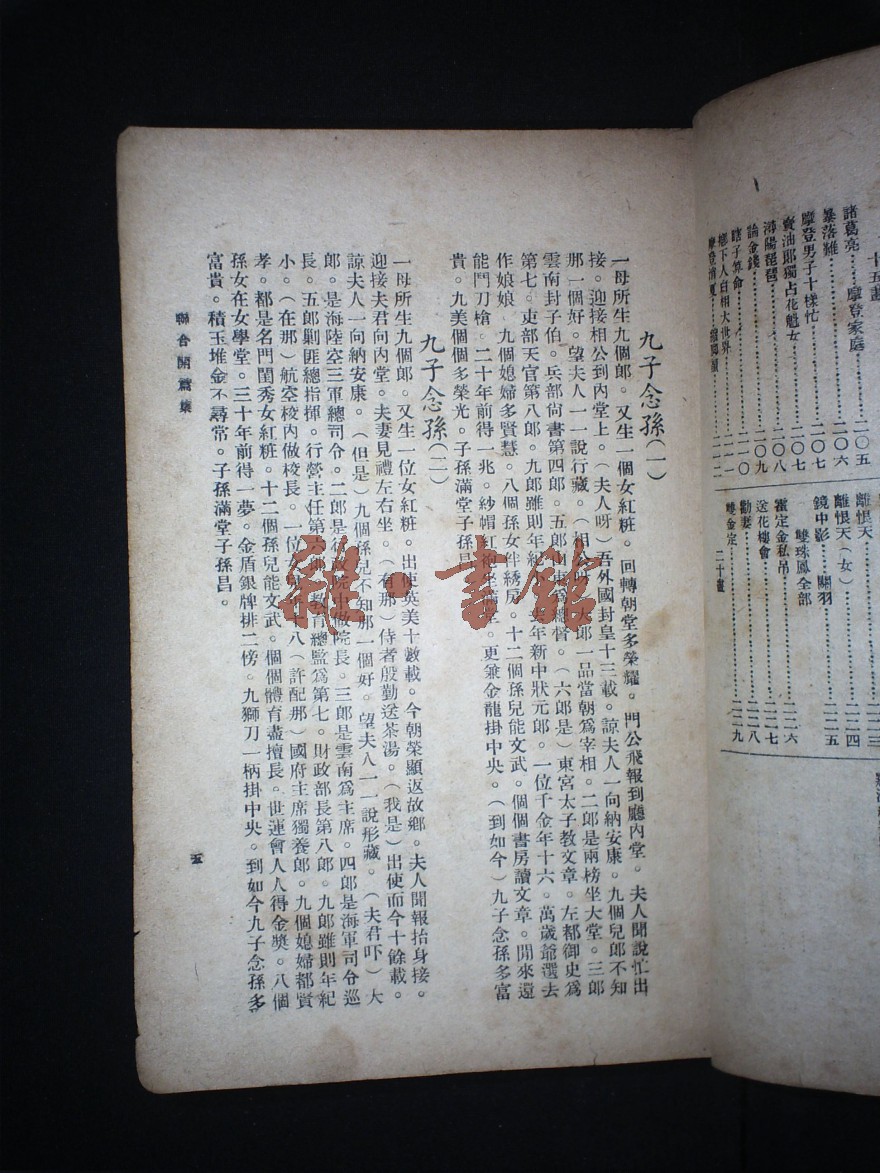 十五畫
諸葛亮………摩登家庭………二〇五
暴落難………二〇六
摩登男子十樣忙………二〇七
賣油郎獨占花魁女………二〇七
潯陽琵琶………二〇八
論金錢………二〇九
瞎子算命………二一〇
鄉下人白相大世界………二一一
摩登消夏………二一二
離恨天
離恨天（女）………二二四
鏡中影………關羽………二二五
雙珠鳳全部
霍定金私吊………二二六
送花樓會………二二七
勸妻………二二八
雙金定………二二九
二十畫
九子念孫（一）
一母所生九個郎。又生一個女紅粧。回轉朝堂多榮耀。門公飛報到廳內堂。夫人聞說忙出
接。迎接相公到內堂上。（夫人呀）吾外國封皇十三載。諒夫人一向納安康。九個兒郎不知
那一個好。望夫人一一說行藏。（相公呀）大郎一品當朝為宰相。二郎是兩榜坐大堂。三郎
雲南封子伯。兵部尚書第四郎。五郎山東為總督。（六郎是）東宮太子教文章。左都御史為
第七。吏部天官第八郎。九郎雖則年紀小。去年新中狀元郎。一位千金年十六。萬歲爺選去
作娘娘。九個媳婦多賢慧。八個孫女伴綉房。十二個孫兒能文武。個個書房讀文章。閒來還
能鬥刀槍。二十年前得一兆。紗帽紅袍坐滿堂。更兼金龍掛中央。（到如今）九子念孫多富
貴。九美個個多榮光。子孫滿堂子孫昌。
九子念孫（二）
一母所生九個郎。又生一位女紅粧。出使英美十數載。今朝榮顯返故鄉。夫人聞報抬身接。
迎接夫君向內堂。夫妻見禮左右坐。（有那）侍者殷勤送茶湯。（我是）出使而今十餘載。
諒夫人一向納安康。（但是）九個孫兒不知那一個好。望夫人一一說形藏。（夫君吓）大
郎。是海陸空三軍總司令。二郎是行政院中做院長。三郎是雲南為主席。四郎是海軍司令巡
長。五郎剿匪總指揮。行營主任第六郎。教育總監為第七。財政部長第八郎。九郎雖則年紀
小。（在那）航空校內做校長。一位女兒年十八（許配那）國府主席獨養郎。九個媳婦都賢
孝。都是名門閨秀女紅粧。十二個孫兒能文武。個個體育盡擅長。世運會人人得金獎。八個
孫女在女學堂。三十年前得一夢。金盾銀牌排二傍。九獅刀一柄掛中央。到如今九子念孫多
富貴。積玉堆金不尋常。子孫滿堂子孫昌。
聯合開篇集
五
雜·書館